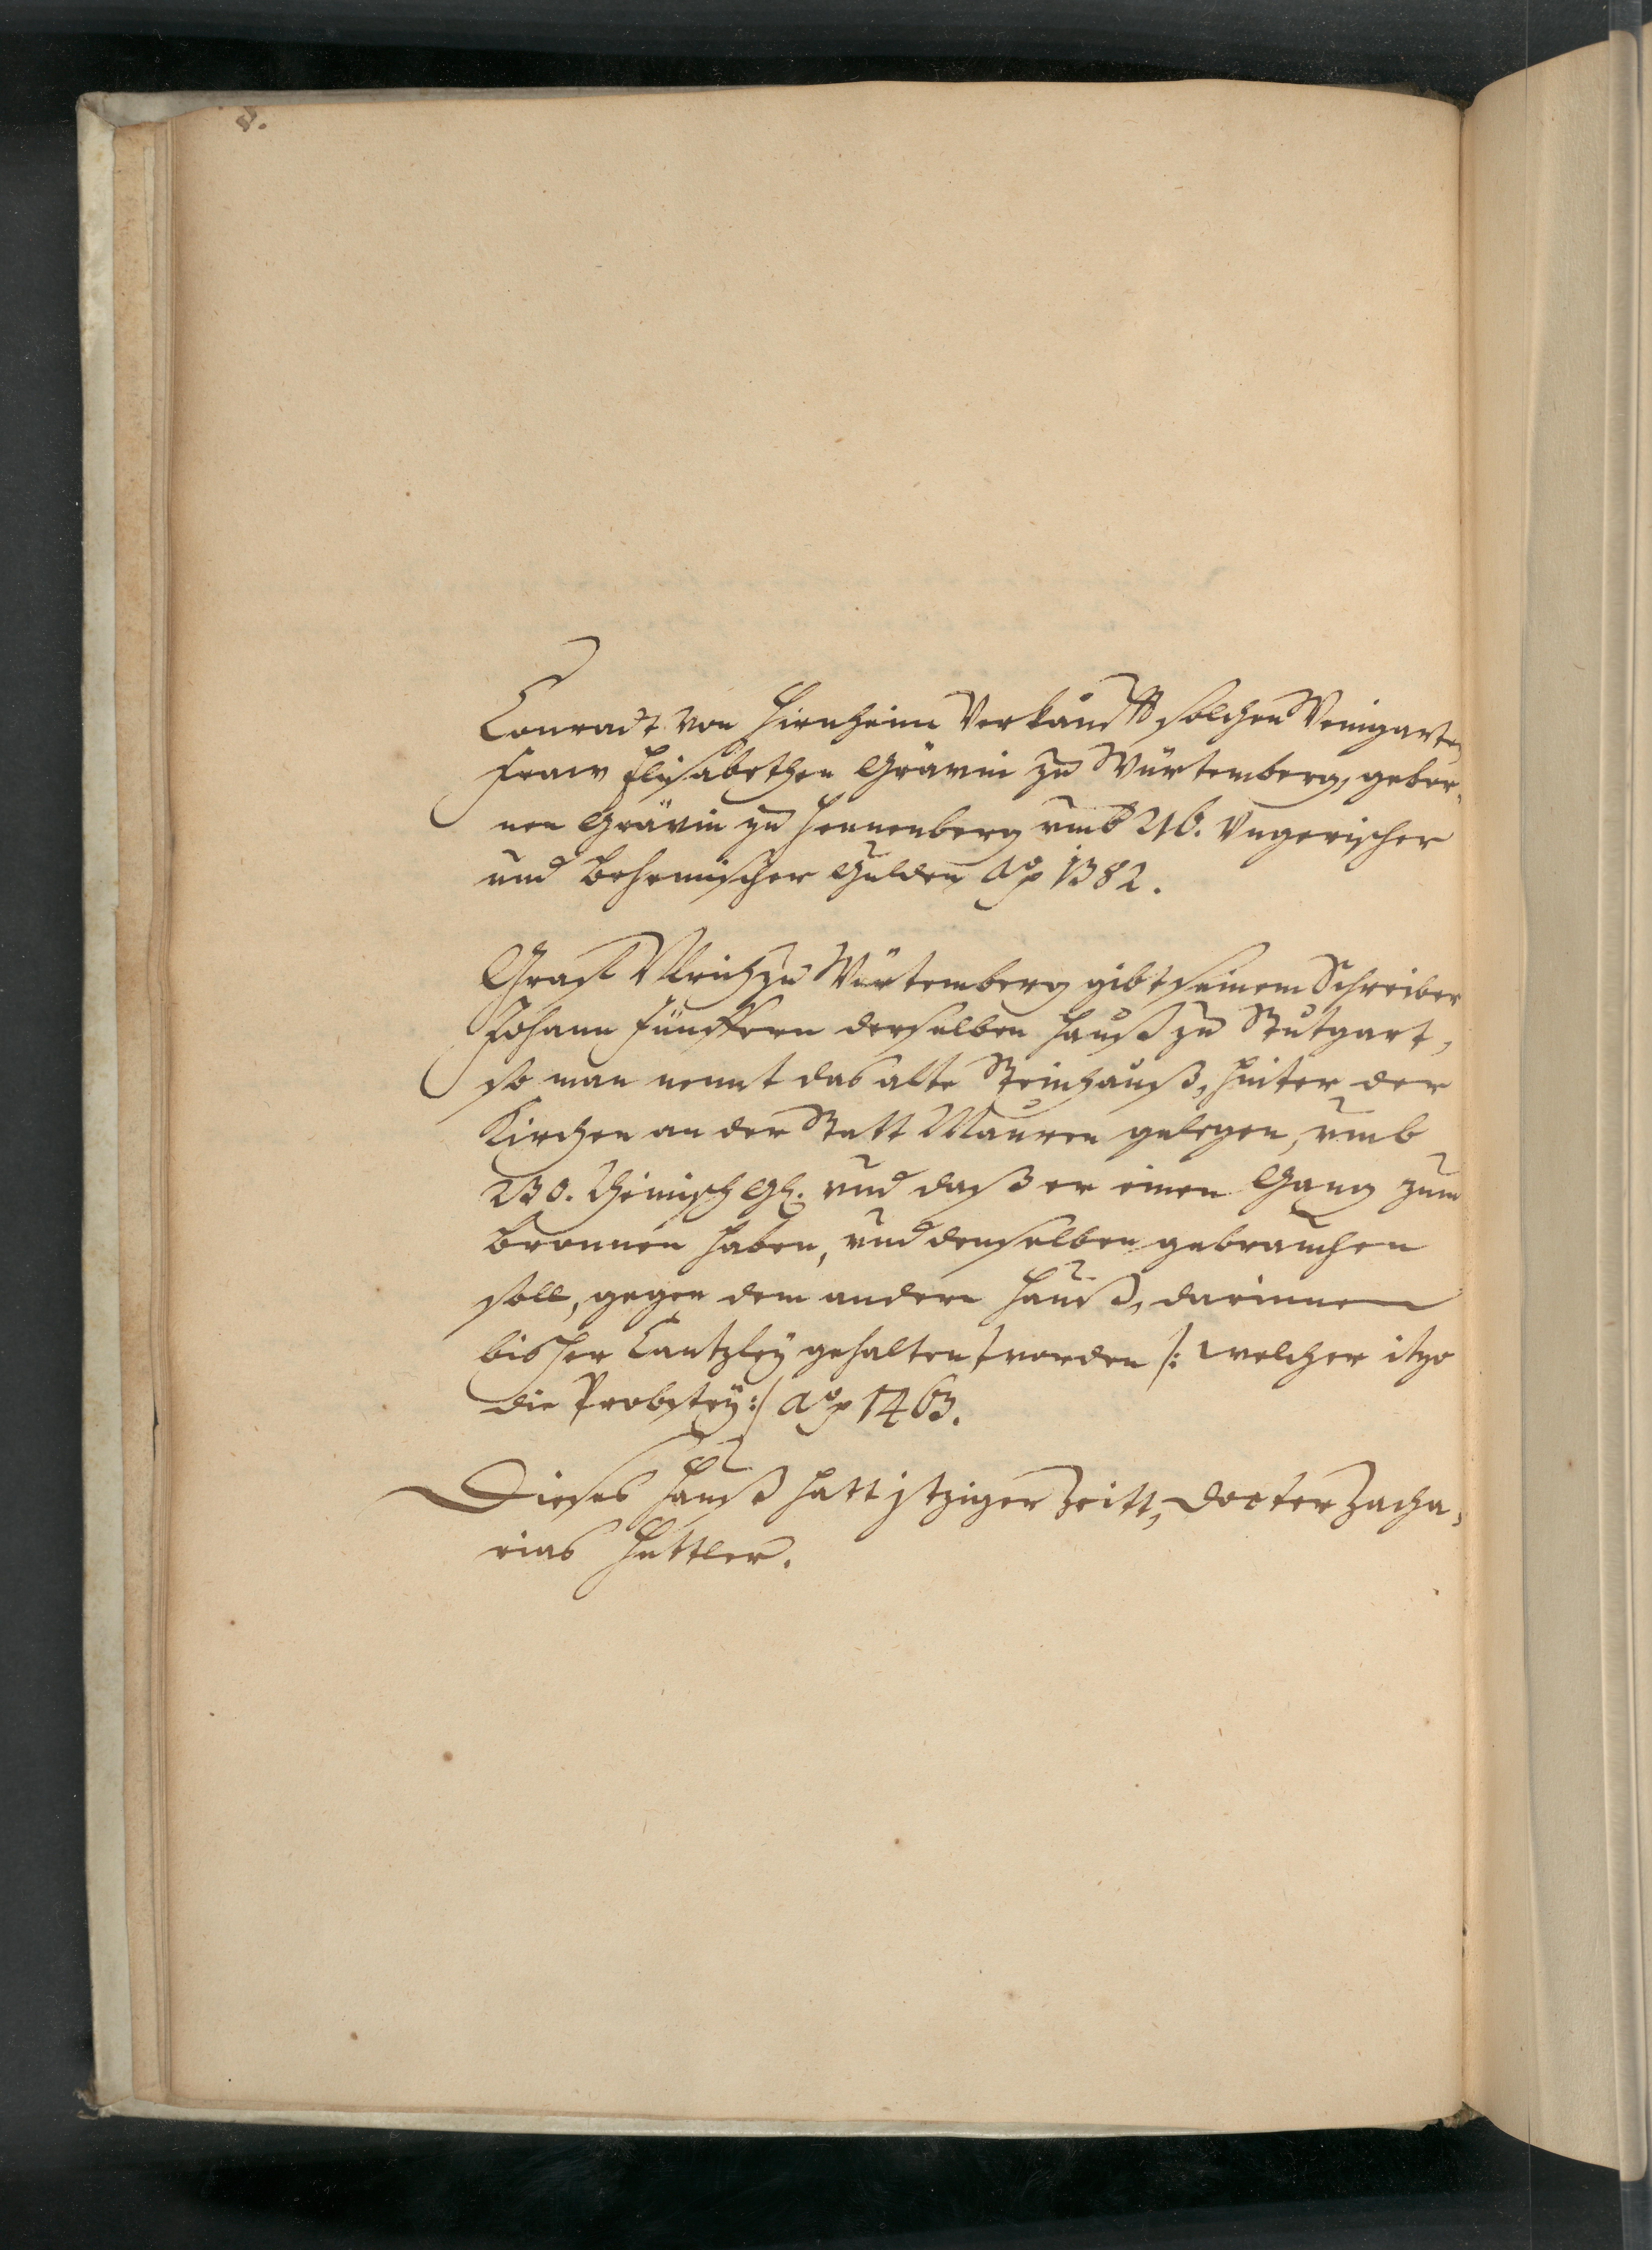 Conradt von Hirnheim verkaufft solchen Weingarten
Fraw Elisabethen Grävin zu Würtemberg, gebor„
nen Grävin zu Hennenberg umb 216. Ungerischer
und Behemischer Gulden Aō 1382.
Graff Ulrich zu Würtemberg gibt seinem Schreiber
Johann Fünffern derselben Hauß zu Stutgart,
so man nennt das alte Steinhauß, hinter der
Kirchen an der Statt Mauren gelegen, umb
230. Rheinisch gl. und daß er einen Gang zum
Bronnen haben, und denselben gebrauchen
soll, gegen dem andern Hauß, darinnen
bisher Cantzley gehalten worden /: welcher itzo
die Probstey :/ Aō 1463.
Dieses Hauß hatt jtziger Zeitt, Docter Zacha„
rias Hettler.